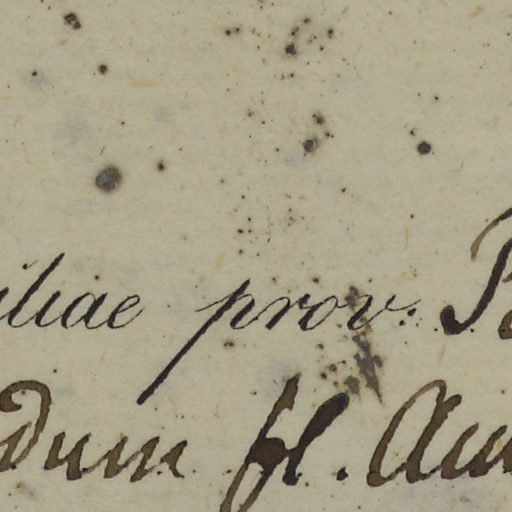 iliae prov. P
dum fl. Au